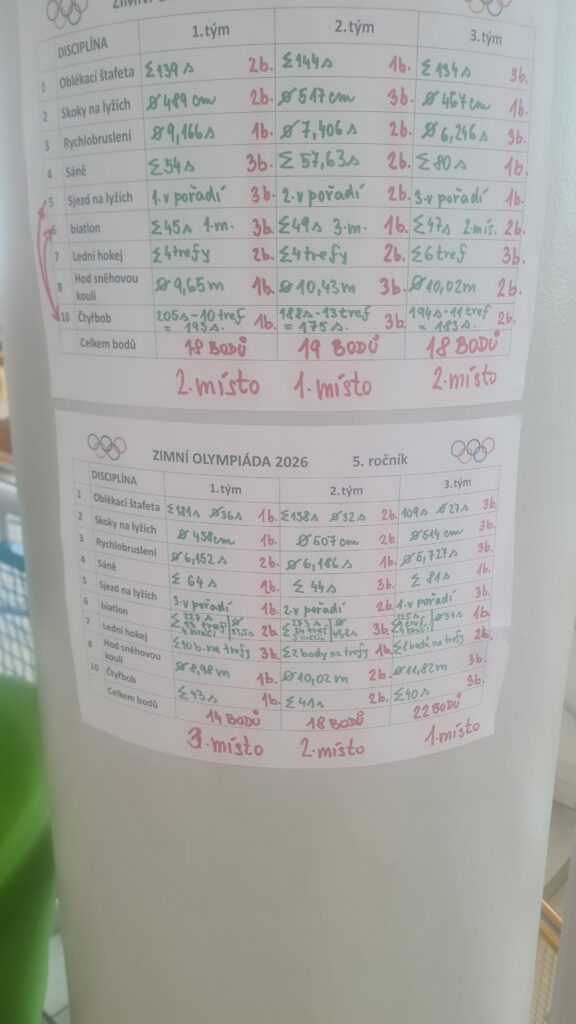 DISCIPLÍNA 1.tým 2.tým 3.tým
1 Oblékací štafeta Σ139s 2b. Σ144s 1b. Σ134s 3b.
2 Skoky na lyžích Ø 489 cm 2b. Ø 517cm 3b. Ø 467cm 1b.
3 Rychlobruslení Ø 9,166s 1b. Ø 7,406s 2b. Ø 6,246s 3b.
4 Sáně Σ 54s 3b. Σ 57,63s 2b. Σ 80s 1b.
5 Sjezd na lyžích 1. v pořadí 3b. 2. v pořadí 2b. 3. v pořadí 1b.
6 biatlon Σ45s 1.m. 3b. Σ49s 3.m. 1b. Σ47s 2.mís. 2b.
7 Lední hokej Σ4trefy 2b. Σ4trefy 2b. Σ6tref 3b.
8 Hod sněhovou koulí Ø 9,65m 1b. Ø 10,43m 3b. Ø 10,02m 2b.
10 Čtyřbob 205s-10 tref = 195s. 1b. 188s-13tref = 175s. 3b. 194s-11tref = 183s. 2b.
Celkem bodů 18 BODŮ 19 BODŮ 18 BODŮ
2. místo 1. místo 2. místo
ZIMNÍ OLYMPIÁDA 2026 5. ročník
DISCIPLÍNA 1.tým 2.tým 3.tým
1 Oblékací štafeta Σ181s Ø36s 1b. Σ158s Ø32s 2b. 109s Ø27s 3b.
2 Skoky na lyžích Ø 458cm 1b. Ø 507cm 2b. Ø 514 cm 3b.
3 Rychlobruslení Ø 6,152s 2b. Ø 6,186s 1b. Ø 5,727s 3b.
4 Sáně Σ 64s 2b. Σ 44s 3b. Σ 81s 1b.
5 Sjezd na lyžích 3. v pořadí 1b. 2. v pořadí 2b. 1. v pořadí 3b.
6 biatlon 2b. 3b. Ø54s 1b.
7 Lední hokej Σ10 b. na trefy 3b. Σ2 body na trefy 1b. Σ8 bodů na trefy 2b.
8 Hod sněhovou koulí Ø 8,98m 1b. Ø 10,02m 2b. Ø 11,82m 3b.
10 Čtyřbob Σ 43s 1b. Σ 41s 2b. Σ40s 3b.
Celkem bodů 14 BODŮ 18 BODŮ 22 BODŮ
3. místo 2. místo 1. místo